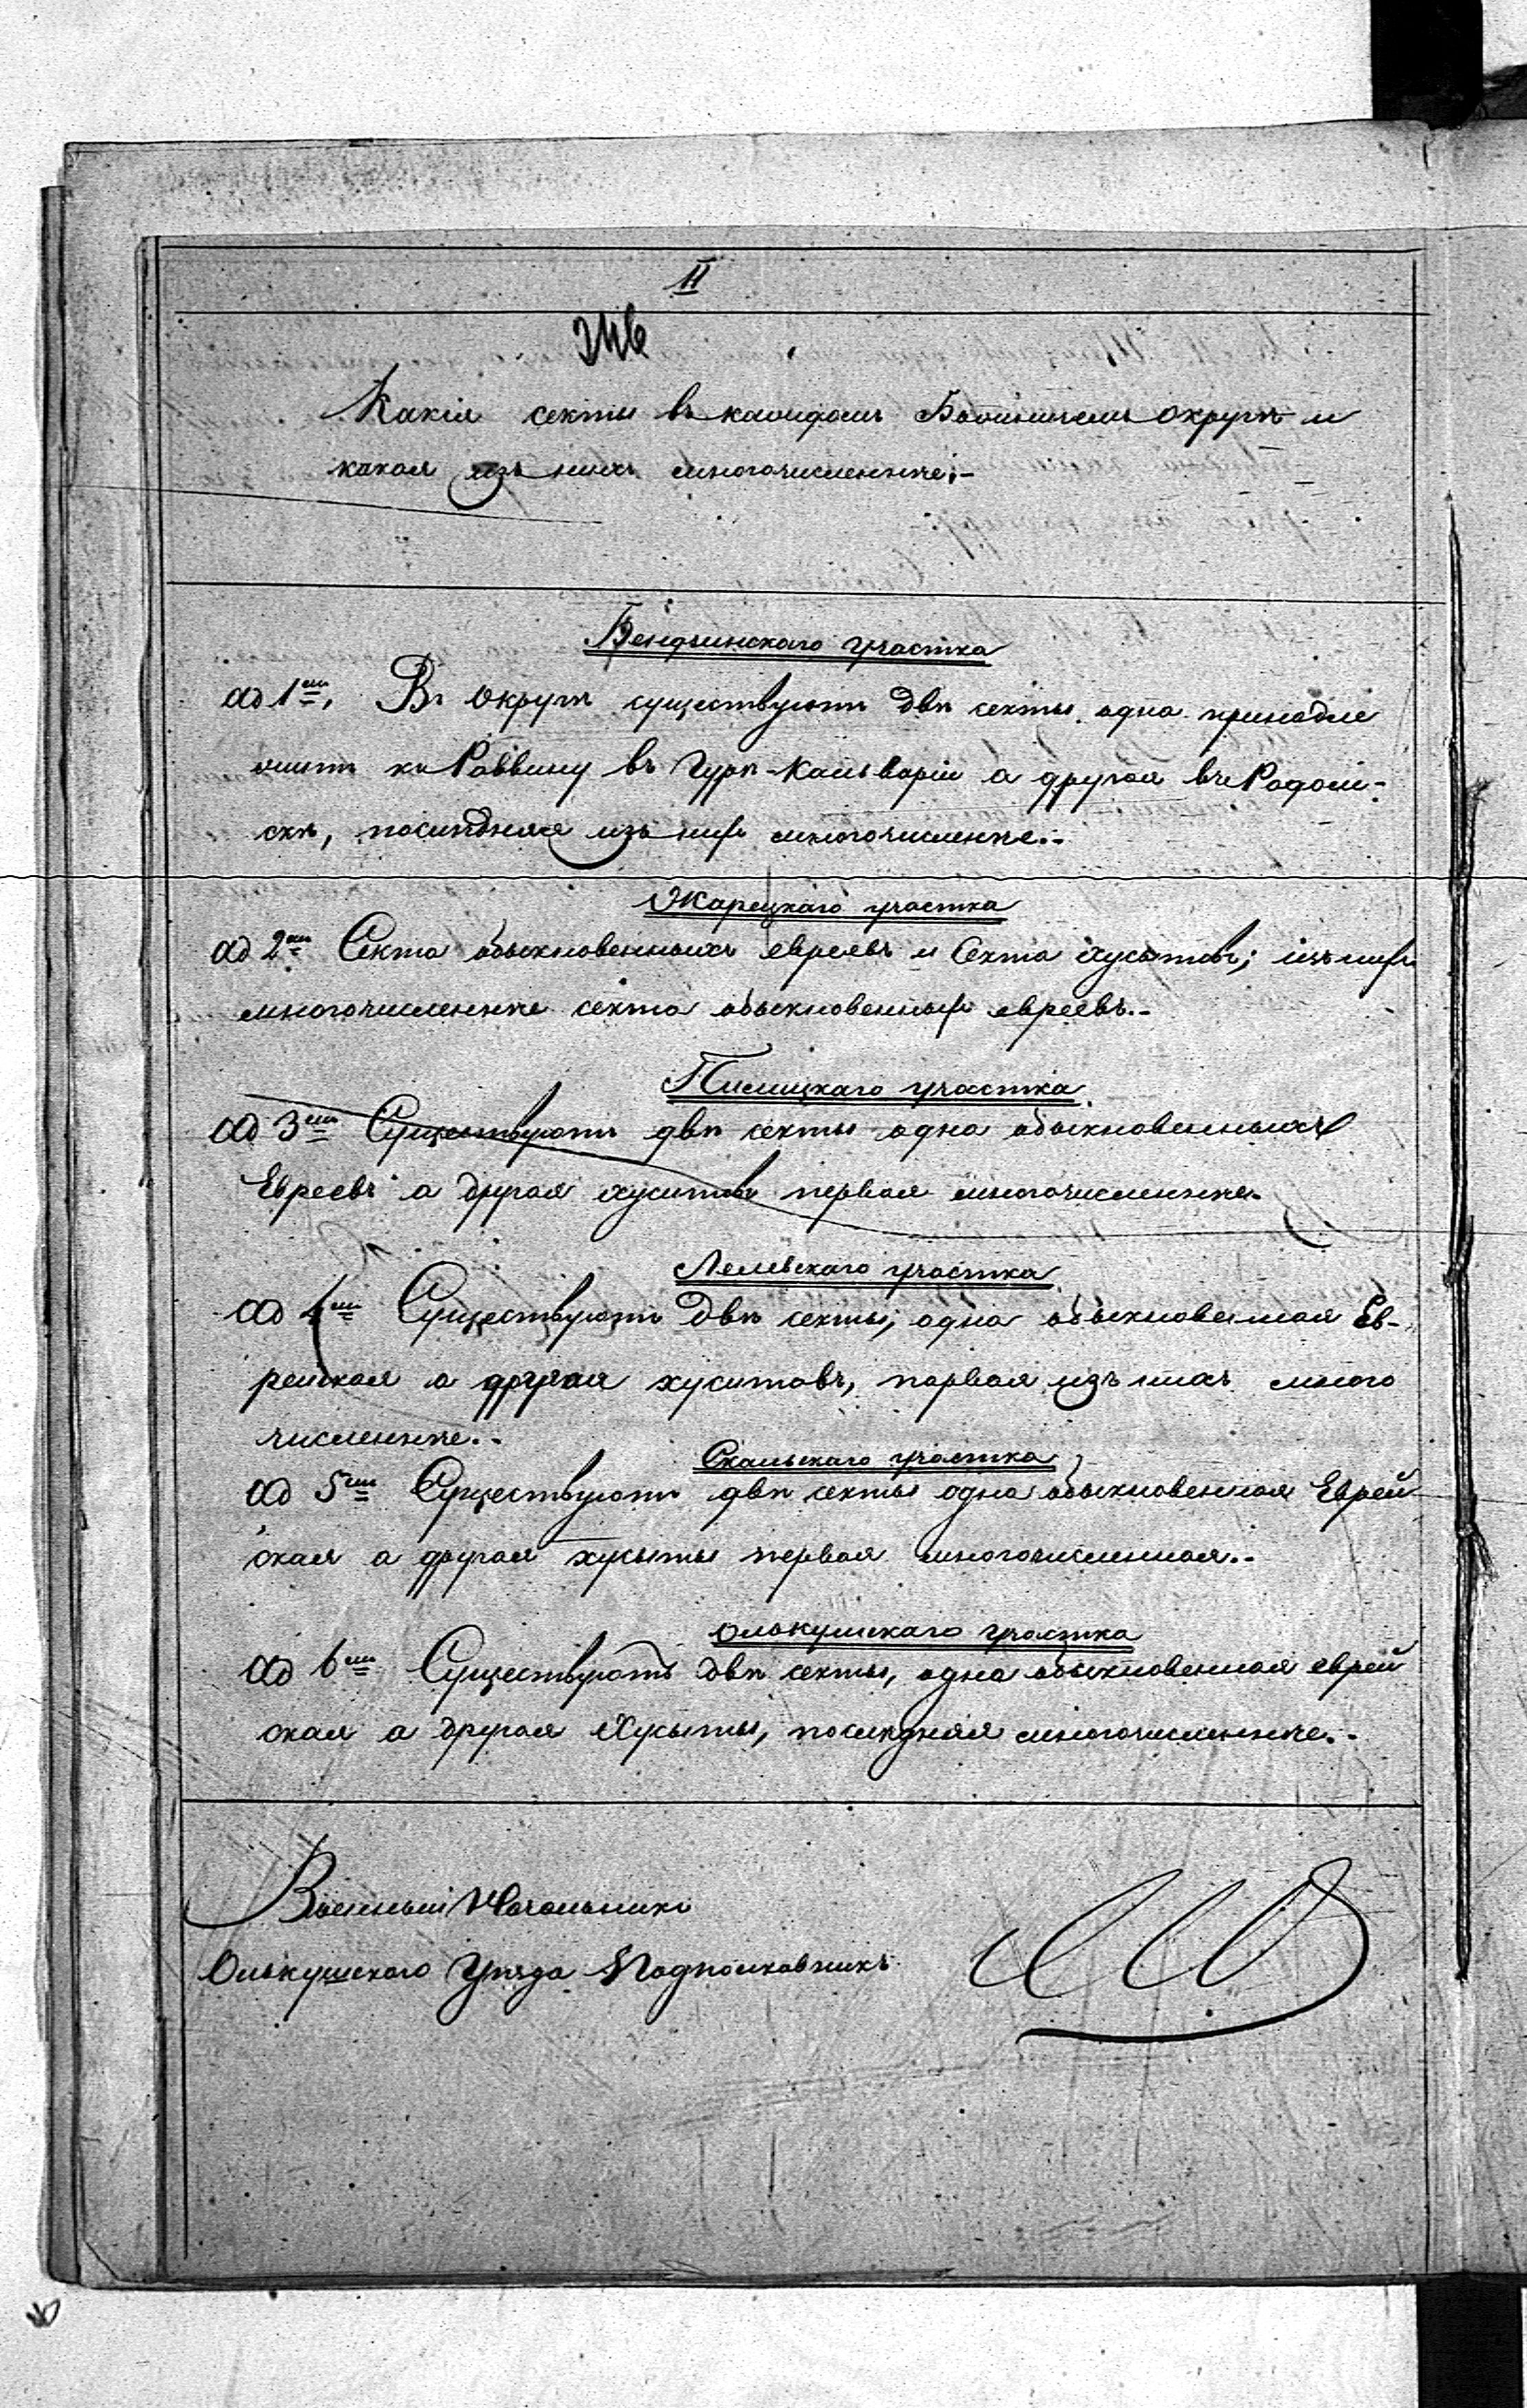 II
Какія секты въ каждомъ Божничемъ округѣ и
какая изъ нихъ многочисленнѣе;-
Бендзинскаго участка
ad 1ем, Въ Округѣ существуютъ двѣ секты, одна принадле
житъ къ Раввину въ Гурѣ-Кальваріи а другая въ Радом-
скѣ, послѣдняя изъ нихъ многочисленнѣе.-
Жарецкаго участка
ad 2ем Секта обыкновенныхъ евреевъ и Секта хуситовъ; изъ нихъ
многочисленнѣе секта обыкновенныхъ евреевъ.-
Пилицкаго участка
ad 3ем Существуютъ двѣ секты одна обыкновенныхъ
Евреевъ а другая хуситовъ первая многочисленнѣе.
Лелевскаго участка
ad 4ем Существуютъ двѣ секты, одна обыкновенная Ев-
рейская а другая хуситовъ, первая изъ нихъ много
численнѣе.-
Скальскаго участка
ad 5ем Существуютъ двѣ секты одна обыкновенная Еврей
ская а другая хусыты первая многочисленная.-
Олькушскаго участка
ad 6ем Существуютъ двѣ секты, одна обыкновенная еврей
ская а другая Хусыты, послѣдняя многочисленнѣе.-
Военный Начальникъ
Олькушскаго Уѣзда Подполковникъ